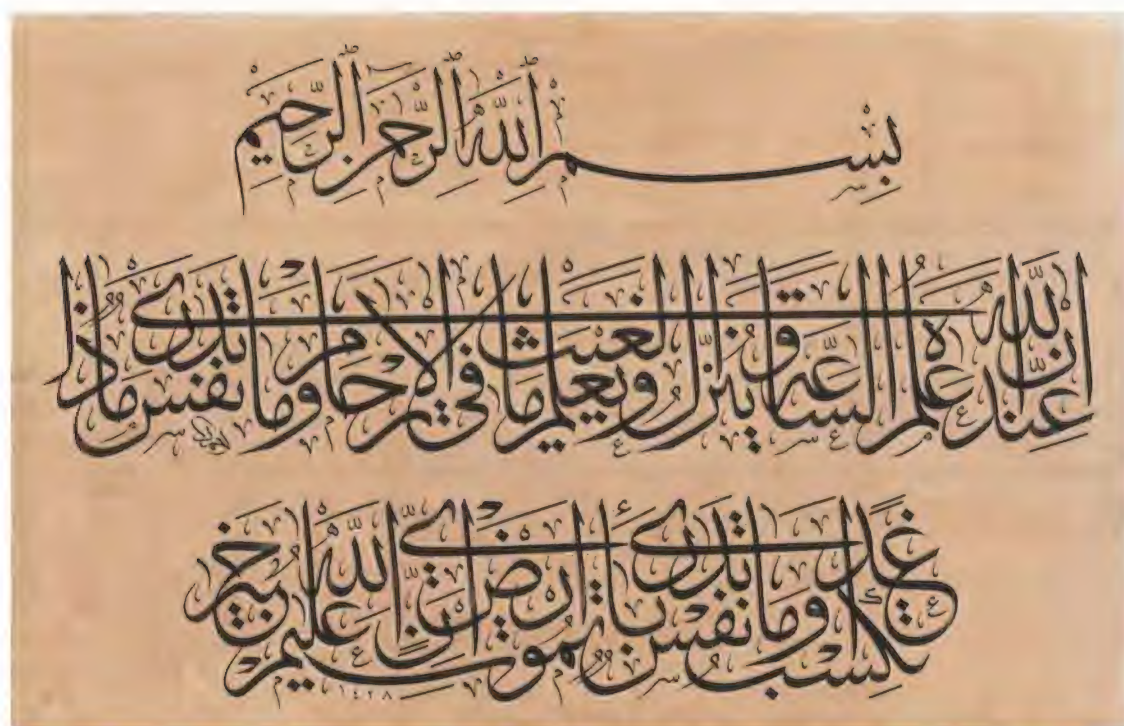 بِسْمِ اللهِ الرَّحْمٰنِ الرَّحِيمِ
إن الله عنده علم الساعة وينزل الغيث ويعلم ما في الأرحام وما تدري نفس ماذا
تكسب غدا وما تدري نفس بأي أرض تموت إن الله عليم خبير
١٤٢٨